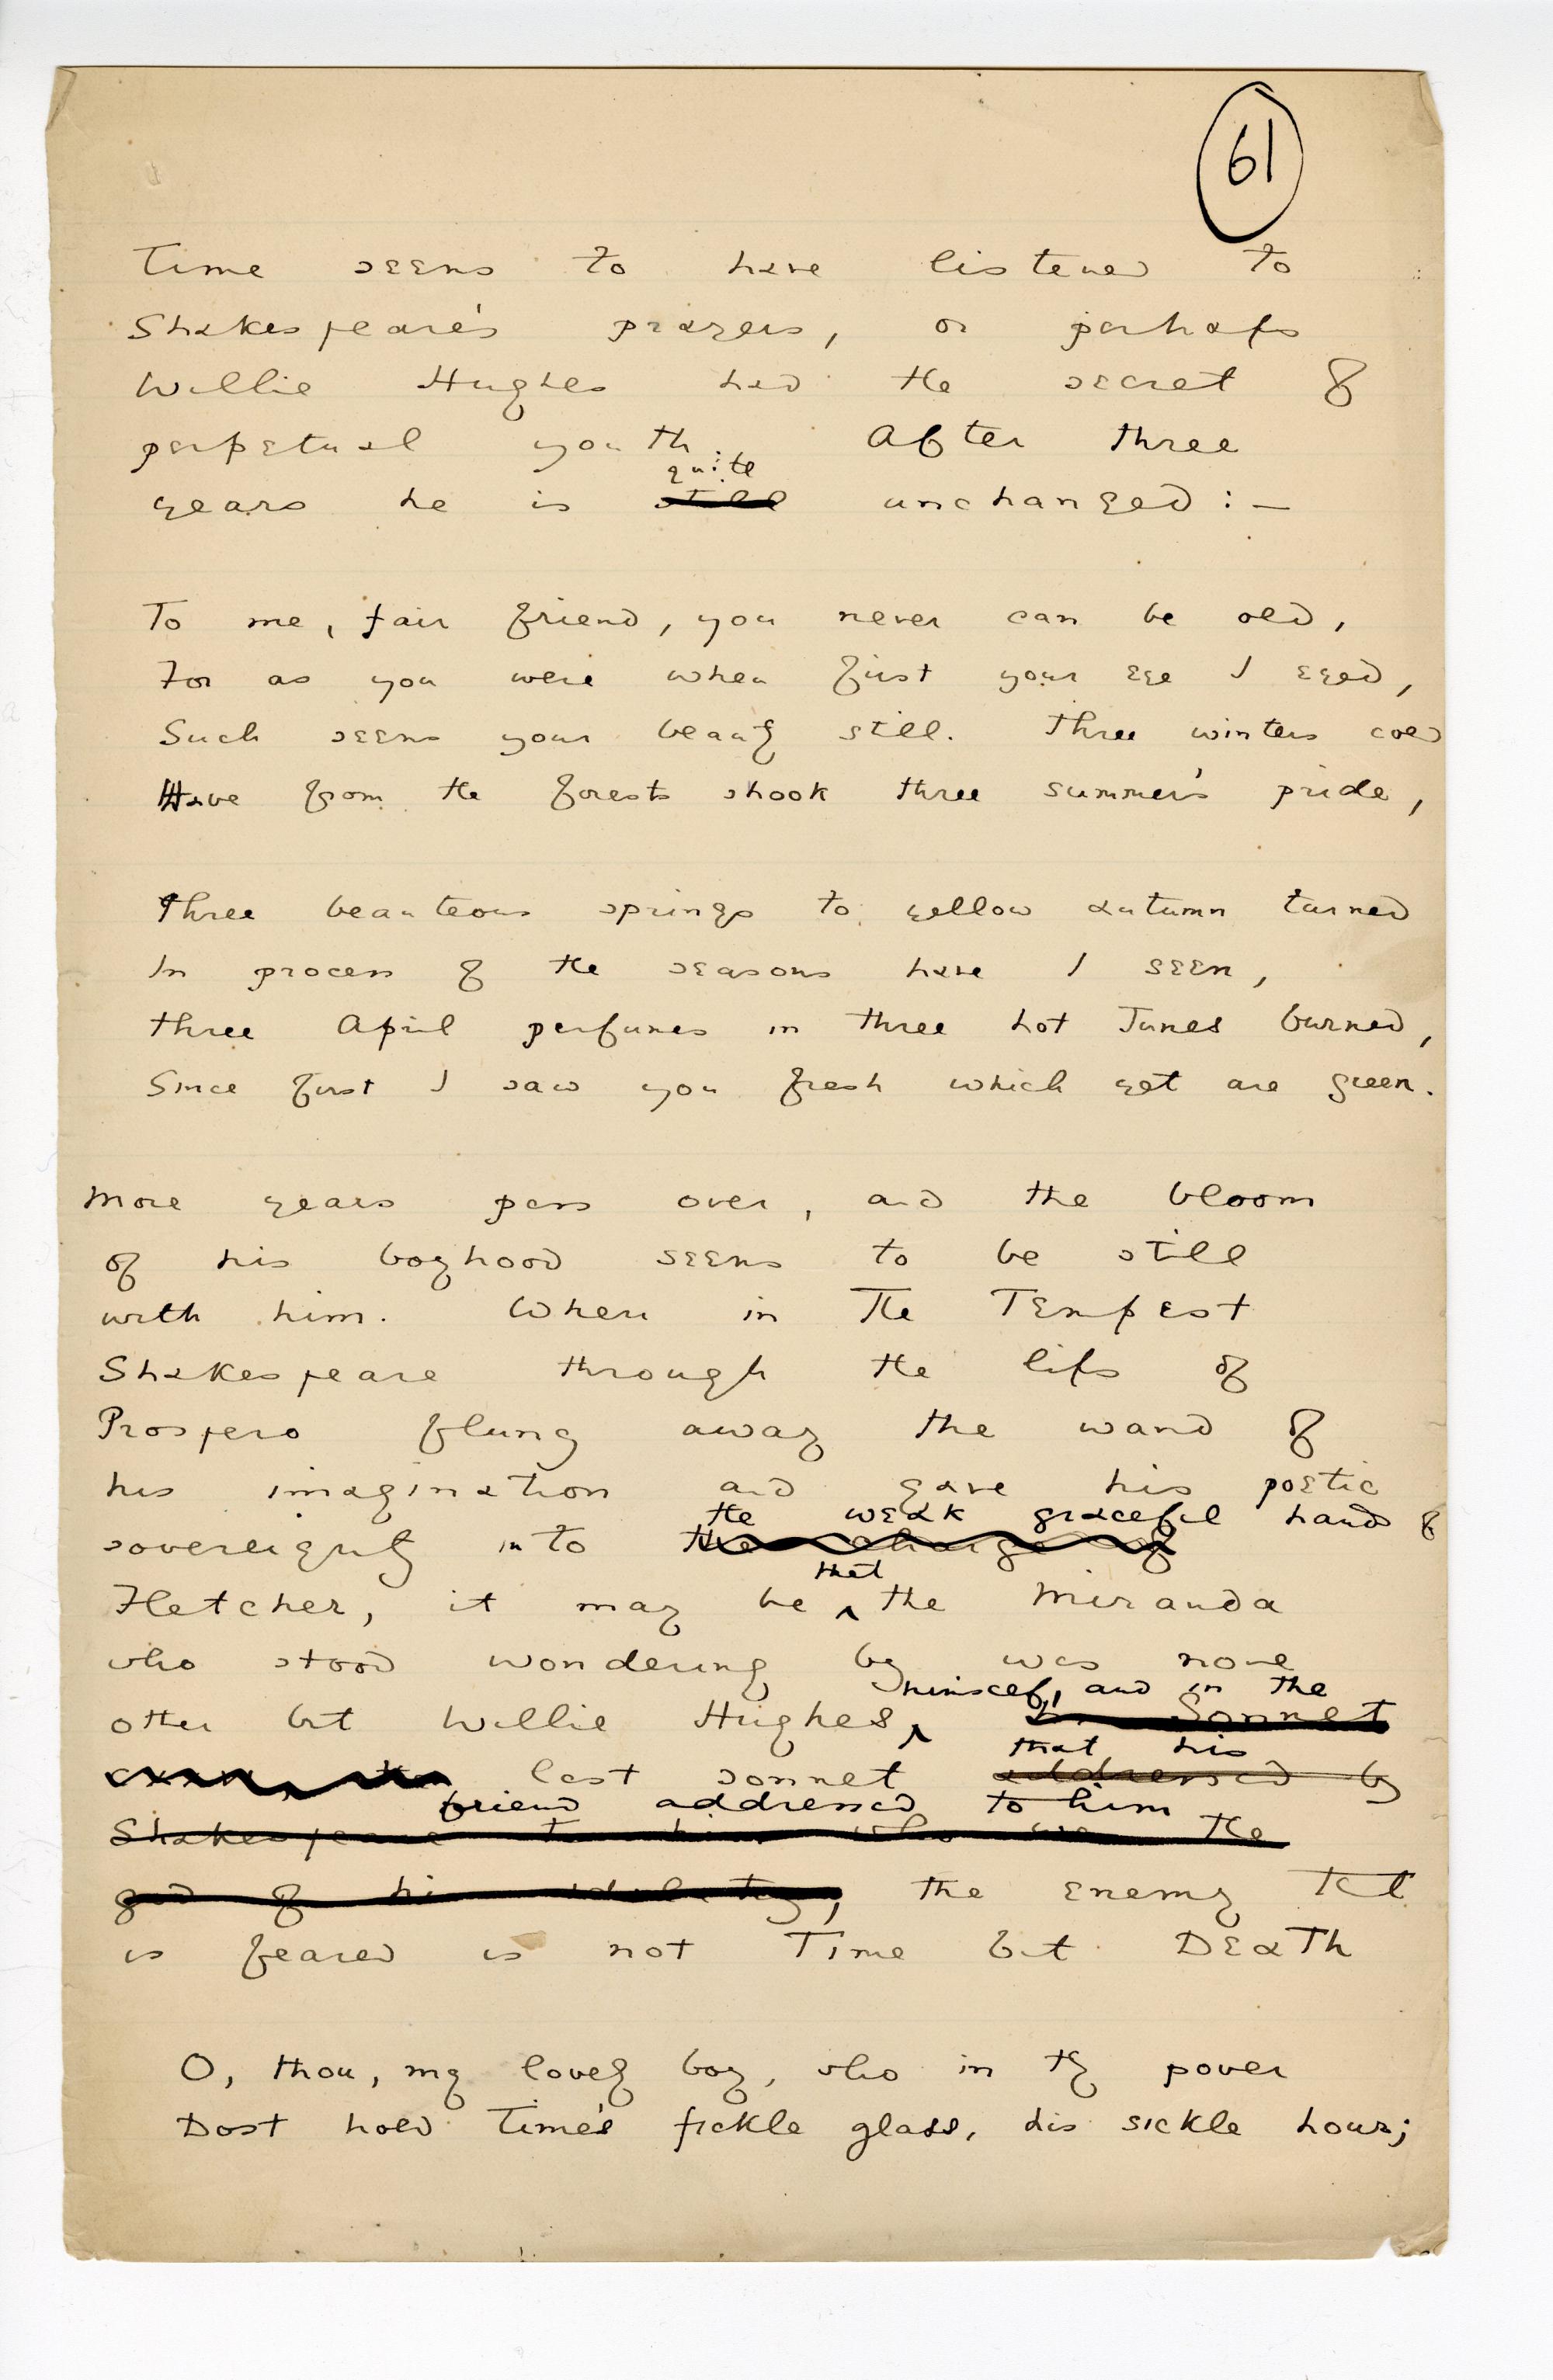 61
Time seems to have listened to
Shakespeare's prayers, or perhaps
Willie Hughes had the secret of
perpetual youth. After three
quite
years he is still unchanged : —
To me, fair friend, you never can be old,
For as you were when first your eye I eyed,
Such seems your beauty still. Three winters cold
Have from the forests shook three summer's pride,
Three beauteous springs to yellow autumn turned
In process of the seasons have I seen,
Three April perfumes in three hot Junes burned,
Since first I saw you fresh which yet are green.
More years pass over, and the bloom
of his boyhood seems to be still
with him. When in The Tempest
Shakespeare through the lips of
Prospero flung away the wand of
his imagination and gave his poetic
the weak graceful hands of
sovereignty into the charge of
that
Fletcher, it may be the Miranda
who stood wondering by was none
himself, and in the
other but Willie Hughes, Sonnet
that his
last sonnet addressed by
friend addressed to him
Shakespeare to him who was the
god of his idolatry, the enemy that
is feared is not Time but Death
O, thou, my lovely boy, who in thy power
Dost hold Time's fickle glass, his sickle hour;